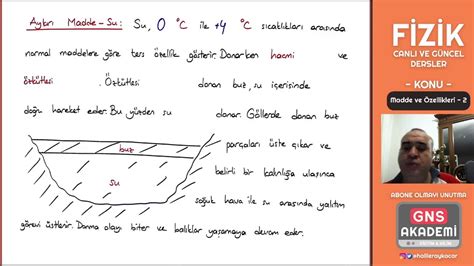 Aykırı Madde - Su: Su, 0 °C ile +4 °C sıcaklıkları arasında
normal maddelere göre ters özellik gösterir. Donarken hacmi ve
özkütlesi . Özkütlesi donan buz, su içerisinde
doğru hareket eder. Bu yüzden su donar. Göllerde donan buz
parçaları üste çıkar ve
belirli bir kalınlığa ulaşınca
soğuk hava ile su arasında yalıtım
görevi üstlenir. Donma olayı biter ve balıklar yaşamaya devam eder.
buz
su
FİZİK
CANLI VE GÜNCEL
DERSLER
- KONU -
Madde ve Özellikleri - 2
ABONE OLMAYI UNUTMA
GNS
AKADEMİ
@halileraykocar